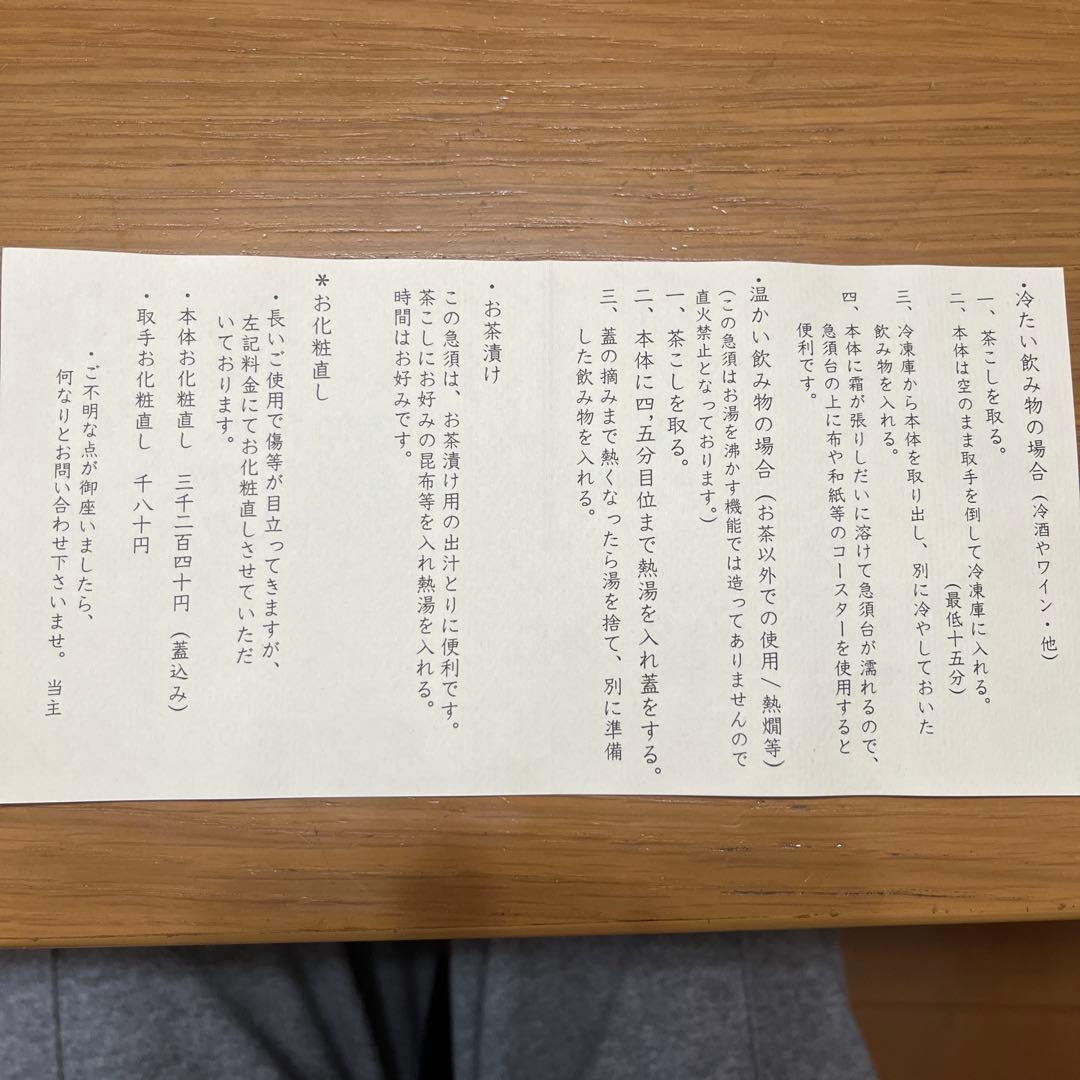 ・冷たい飲み物の場合（冷酒やワイン・他）
一、茶こしを取る。
二、本体は空のまま取手を倒して冷凍庫に入れる。
（最低十五分）
三、冷凍庫から本体を取り出し、別に冷やしておいた
飲み物を入れる。
四、本体に霜が張りしだいに溶けて急須台が濡れるので、
急須台の上に布や和紙等のコースターを使用すると
便利です。
・温かい飲み物の場合（お茶以外での使用／熱燗等）
（この急須はお湯を沸かす機能では造ってありませんので
直火禁止となっております。）
一、茶こしを取る。
二、本体に四，五分目位まで熱湯を入れ蓋をする。
三、蓋の摘みまで熱くなったら湯を捨て、別に準備
した飲み物を入れる。
・お茶漬け
この急須は、お茶漬け用の出汁とりに便利です。
茶こしにお好みの昆布等を入れ熱湯を入れる。
時間はお好みです。
＊お化粧直し
・長いご使用で傷等が目立ってきますが、
左記料金にてお化粧直しさせていただ
いております。
・本体お化粧直し　三千二百四十円（蓋込み）
・取手お化粧直し　千八十円
・ご不明な点が御座いましたら、
何なりとお問い合わせ下さいませ。　当主